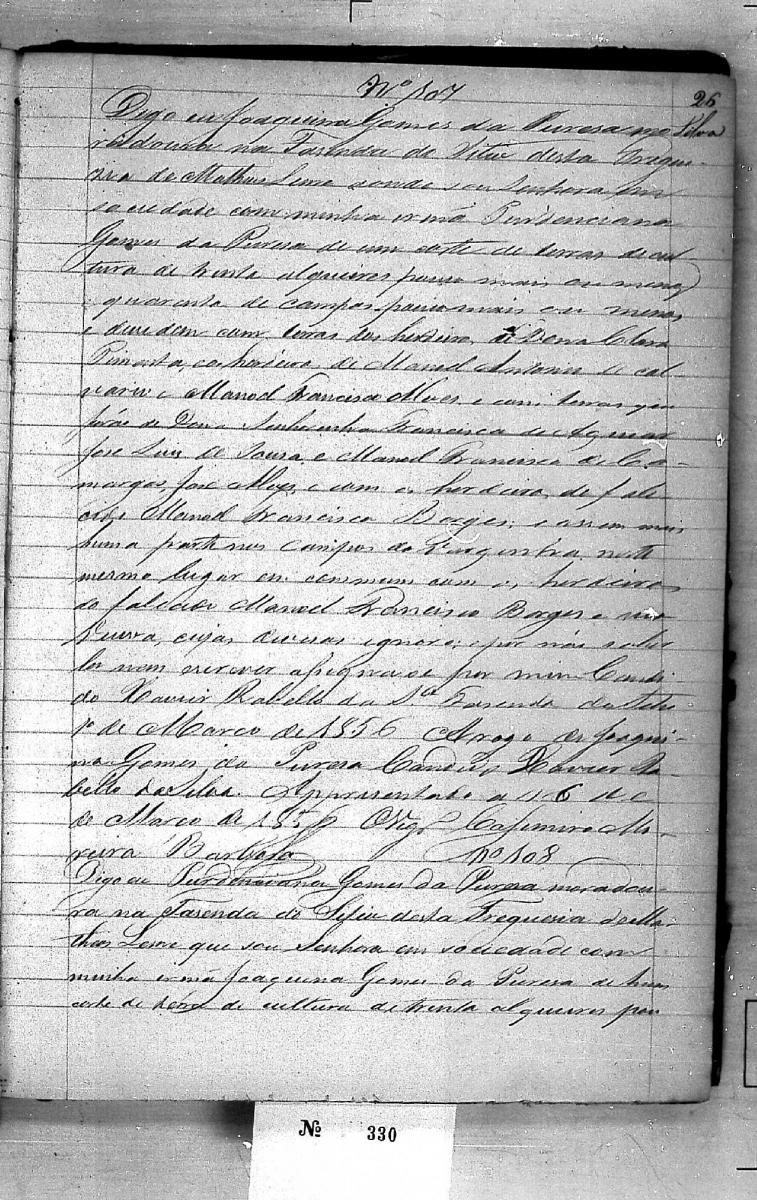 Nº 107
26
Digo eu Joaquina Gomes da Puresa mo
Silva
radoura na Fasenda do desta Fregue-
sia de Matheus Leme aonde sou Senhora em
sociedade com minha irmã Purdenciana
Gomes da Puresa de um corte de terras de cul
tura de trinta alqueires pouco mais ou menos
quarenta de campos pouco mais ou menos
e devidem com terras dos herdeiros de Dona Clara
Pimenta, os herdeiros de Manoel Antonio de
e Manoel Francisco Alves, e com terras que
forão de Dona Francisca de Aguiar
José Luis de Sousa, e Manoel Francisco de Ca-
margos, José Alves, e com os herdeiros do fale
cido Manoel Francisco Borges; e assim mais
huma parte nos campos da neste
mesmo lugar em commum com os herdeiros
do falecido Manoel Francisco Borges e
cujas devisas ignoro; e por não saber
ler nem escrever assignase por mim Candi
do Xavier Rabello da Sª Fasenda do
1º de Março de 1856 Arogo de Joaqui-
na Gomes da Puresa Candido Xavier Ra-
bello da Silva. Appresentado a 16 de
de Março de 1856 Vigrº Casimiro Mo-
reira Barbosa
Nº 108
Digo eu Purdenciana Gomes da Puresa moradou-
ra na Fasenda do desta Freguesia de Ma-
theus Leme que sou Senhora em sociedade com
minha irmã Joaquina Gomes da Puresa de hum
corte de terras de cultura de trinta alqueires pou
Nº 330